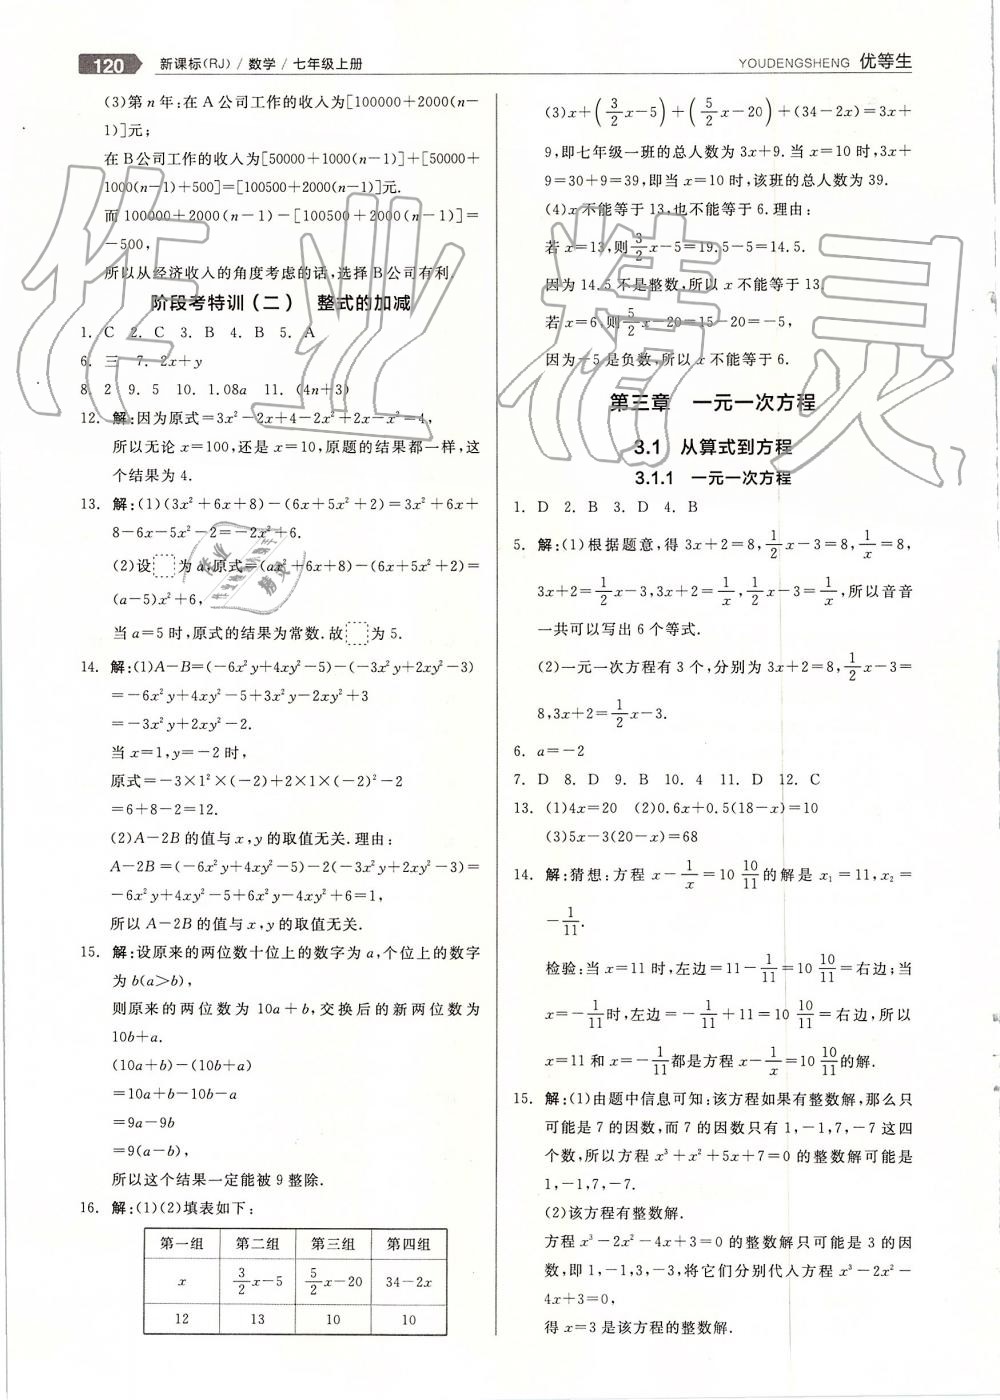 120 新课标(RJ)/数学/七年级上册
YOUDENGSHENG 优等生
(3)第n年:在A公司工作的收入为[100000+2000(n-
1)]元;
在B公司工作的收入为[50000+1000(n-1)]+[50000+
1000(n-1)+500]=[100500+2000(n-1)]元.
而100000+2000(n-1)-[100500+2000(n-1)]=
-500,
所以从经济收入的角度考虑的话,选择B公司有利.
阶段考特训(二) 整式的加减
1. C 2. C 3. B 4. B 5. A
6. 三 7. 2x+y
8. 2 9. 5 10. 1.08a 11. (4n+3)
12. 解:因为原式=3x²-2x+4-2x²+2x-x²=4,
所以无论x=100,还是x=10,原题的结果都一样,这
个结果为4.
13. 解:(1)(3x²+6x+8)-(6x+5x²+2)=3x²+6x+
8-6x-5x²-2=-2x²+6.
(2)设□为a,原式=(ax²+6x+8)-(6x+5x²+2)=
(a-5)x²+6,
当a=5时,原式的结果为常数.故□为5.
14. 解:(1)A-B=(-6x²y+4xy²-5)-(-3x²y+2xy²-3)
=-6x²y+4xy²-5+3x²y-2xy²+3
=-3x²y+2xy²-2.
当x=1,y=-2时,
原式=-3×1²×(-2)+2×1×(-2)²-2
=6+8-2=12.
(2)A-2B的值与x,y的取值无关.理由:
A-2B=(-6x²y+4xy²-5)-2(-3x²y+2xy²-3)=
-6x²y+4xy²-5+6x²y-4xy²+6=1,
所以A-2B的值与x,y的取值无关.
15. 解:设原来的两位数十位上的数字为a,个位上的数字
为b(a>b),
则原来的两位数为10a+b,交换后的新两位数为
10b+a.
(10a+b)-(10b+a)
=10a+b-10b-a
=9a-9b
=9(a-b),
所以这个结果一定能被9整除.
16. 解:(1)(2)填表如下:
第一组 第二组 第三组 第四组
x 3/2x-5 5/2x-20 34-2x
12 13 10 10
(3)x+(3/2x-5)+(5/2x-20)+(34-2x)=3x+
9,即七年级一班的总人数为3x+9.当x=10时,3x+
9=30+9=39,即当x=10时,该班的总人数为39.
(4)x不能等于13,也不能等于6.理由:
若x=13,则3/2x-5=19.5-5=14.5.
因为14.5不是整数,所以x不能等于13.
若x=6,则5/2x-20=15-20=-5.
因为-5是负数,所以x不能等于6.
第三章 一元一次方程
3.1 从算式到方程
3.1.1 一元一次方程
1. D 2. B 3. D 4. B
5. 解:(1)根据题意,得3x+2=8,1/2x-3=8,1/x=8,
3x+2=1/2x-3,3x+2=1/x,1/2x-3=1/x,所以音音
一共可以写出6个等式.
(2)一元一次方程有3个,分别为3x+2=8,1/2x-3=
8,3x+2=1/2x-3.
6. a=-2
7. D 8. D 9. B 10. 4 11. D 12. C
13. (1)4x=20 (2)0.6x+0.5(18-x)=10
(3)5x-3(20-x)=68
14. 解:猜想:方程x-1/x=10 10/11的解是x₁=11,x₂=
-1/11.
检验:当x=11时,左边=11-1/11=10 10/11=右边;当
x=-1/11时,左边=-1/11+11=10 10/11=右边,所以
x=11和x=-1/11都是方程x-1/x=10 10/11的解.
15. 解:(1)由题中信息可知:该方程如果有整数解,那么只
可能是7的因数,而7的因数只有1,-1,7,-7这四
个数,所以方程x³+x²+5x+7=0的整数解可能是
1,-1,7,-7.
(2)该方程有整数解.
方程x³-2x²-4x+3=0的整数解只可能是3的因
数,即1,-1,3,-3,将它们分别代入方程x³-2x²-
4x+3=0,
得x=3是该方程的整数解.
作业精灵